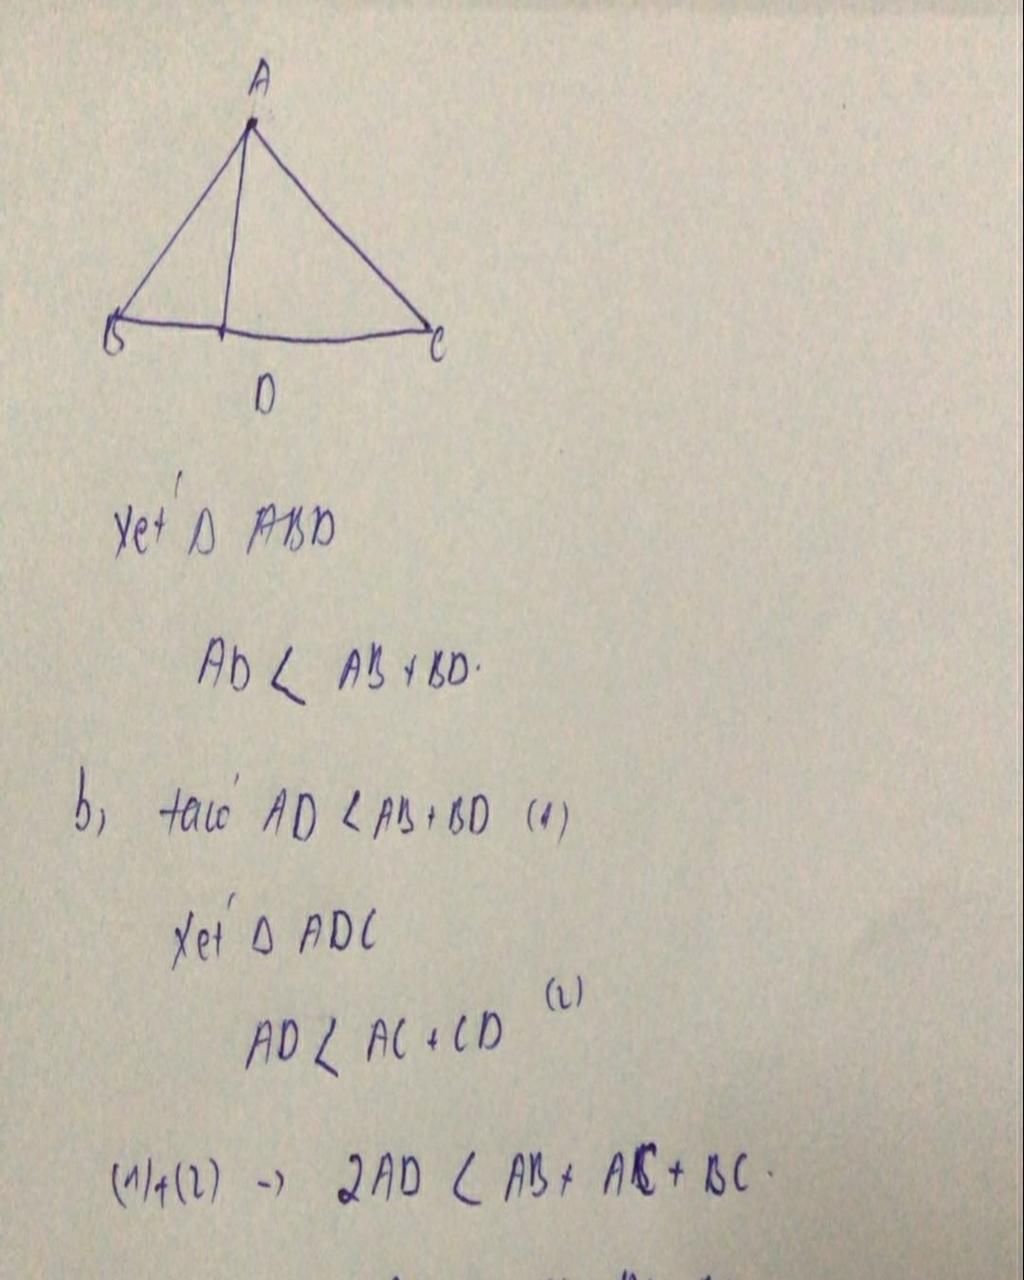 A
B
C
D
Xét Δ ABD
AD < AB + BD.
b, ta có AD < AB + BD (1)
Xét Δ ADC
AD < AC + CD (2)
(1)+(2) -> 2AD < AB + AC + BC.